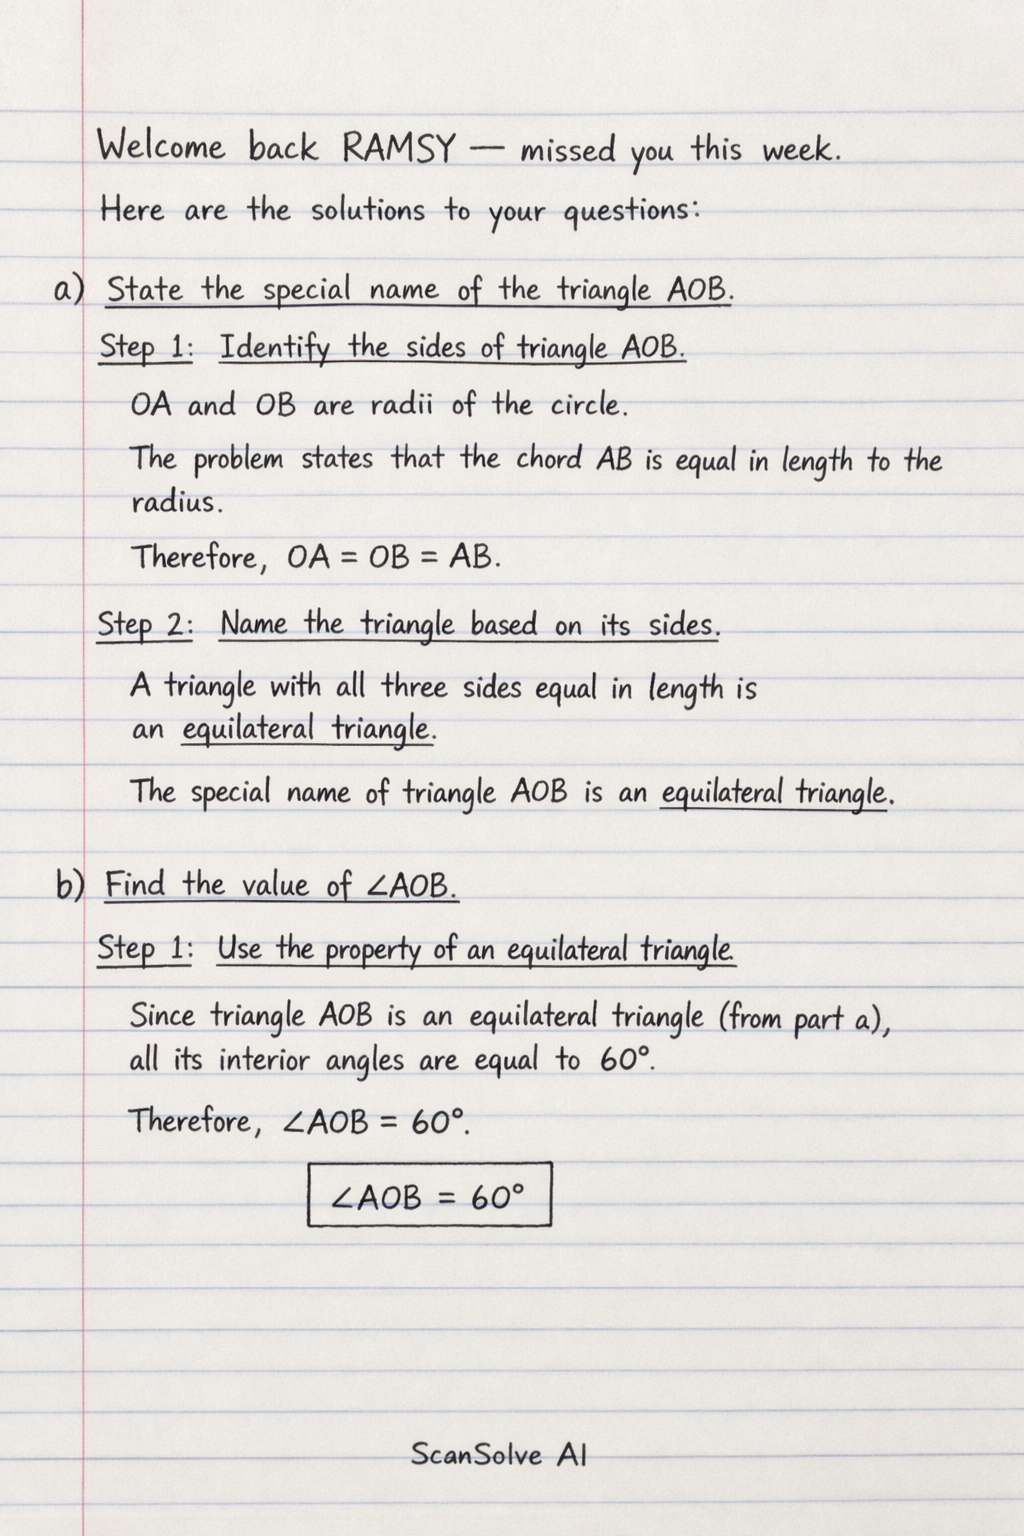 Welcome back RAMSY — missed you this week.
Here are the solutions to your questions:
a) State the special name of the triangle AOB.
Step 1: Identify the sides of triangle AOB.
OA and OB are radii of the circle.
The problem states that the chord AB is equal in length to the
radius.
Therefore, OA = OB = AB.
Step 2: Name the triangle based on its sides.
A triangle with all three sides equal in length is
an equilateral triangle.
The special name of triangle AOB is an equilateral triangle.
b) Find the value of ∠AOB.
Step 1: Use the property of an equilateral triangle.
Since triangle AOB is an equilateral triangle (from part a),
all its interior angles are equal to 60°.
Therefore, ∠AOB = 60°.
∠AOB = 60°
ScanSolve AI